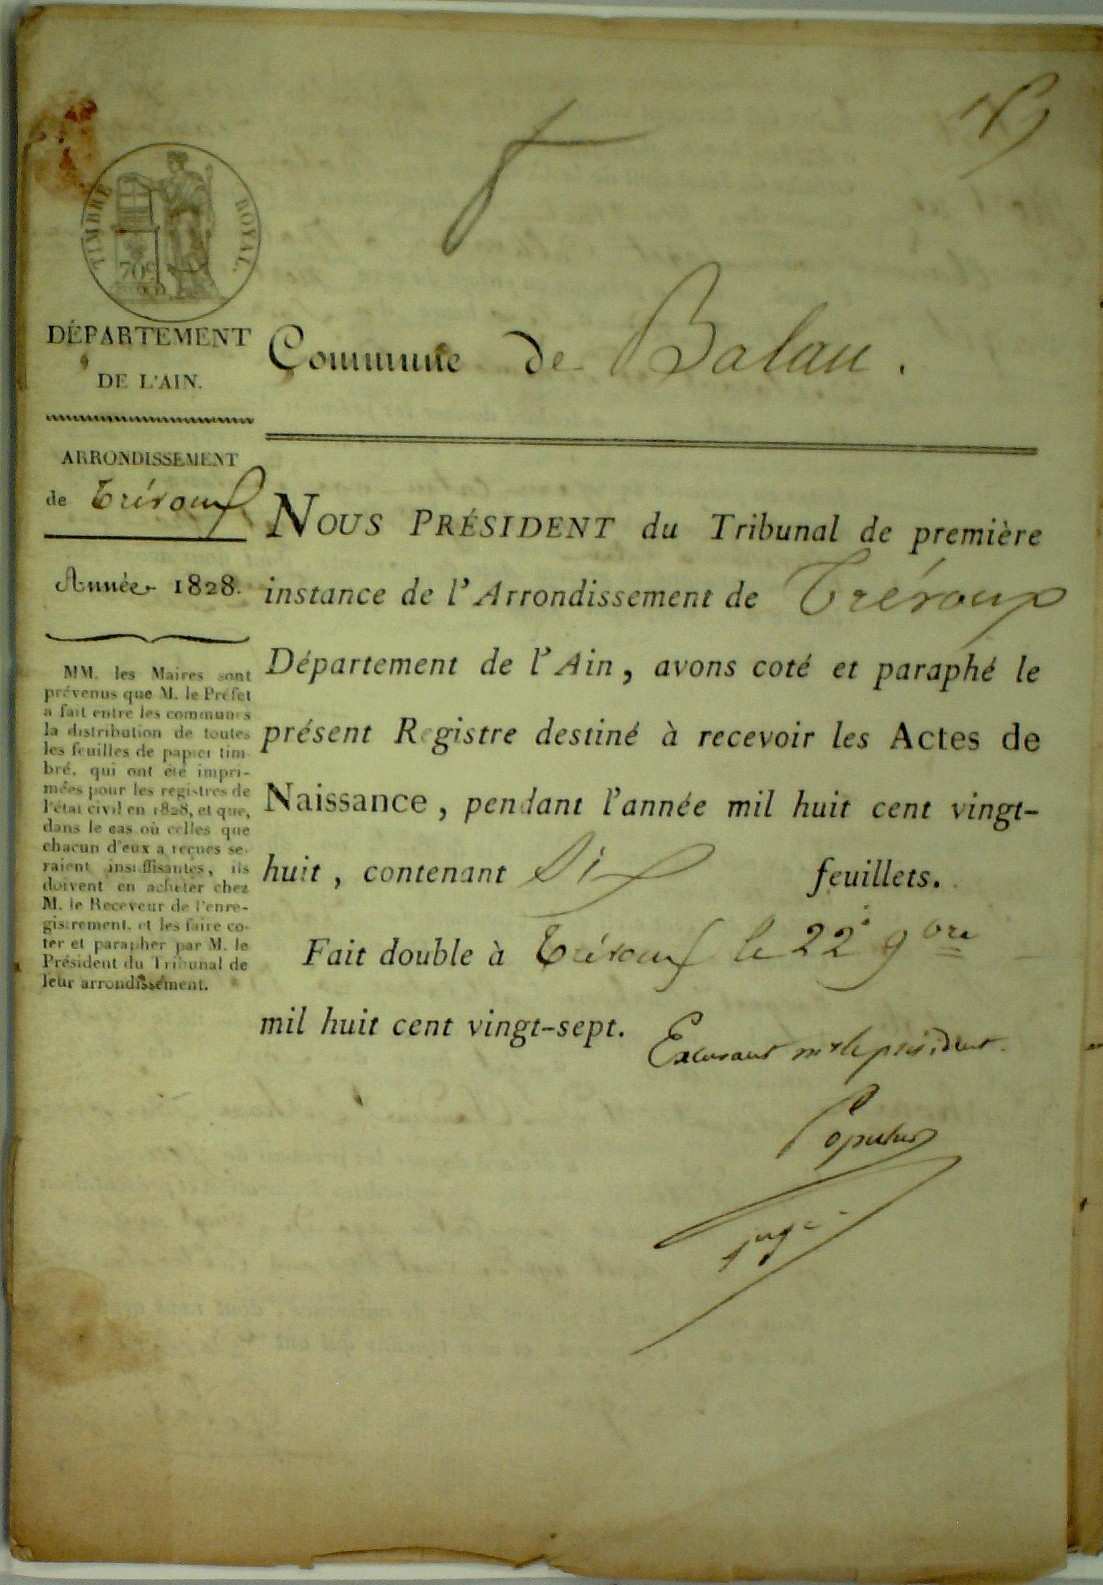 TIMBRE ROYAL.
DÉPARTEMENT
DE L'AIN.
ARRONDISSEMENT
de Trévoux
Année 1828.
MM. les Maires sont
prévenus que M. le Préfet
a fait entre les communes
la distribution de toutes
les feuilles de papier tim-
bré, qui ont été impri-
mées pour les registres de
l'état civil en 1828, et que,
dans le cas où celles que
chacun d'eux a reçues se-
raient insuffisantes, ils
doivent en acheter chez
M. le Receveur de l'enre-
gistrement, et les faire co-
ter et parapher par M. le
Président du Tribunal de
leur arrondissement.
Commune de Balan.
NOUS PRÉSIDENT du Tribunal de première
instance de l'Arrondissement de Trévoux
Département de l'Ain, avons coté et paraphé le
présent Registre destiné à recevoir les Actes de
Naissance, pendant l'année mil huit cent vingt-
huit, contenant Six feuillets.
Fait double à Trévoux le 22 9bre
mil huit cent vingt-sept.
Excusant mr le président
Populus
juge